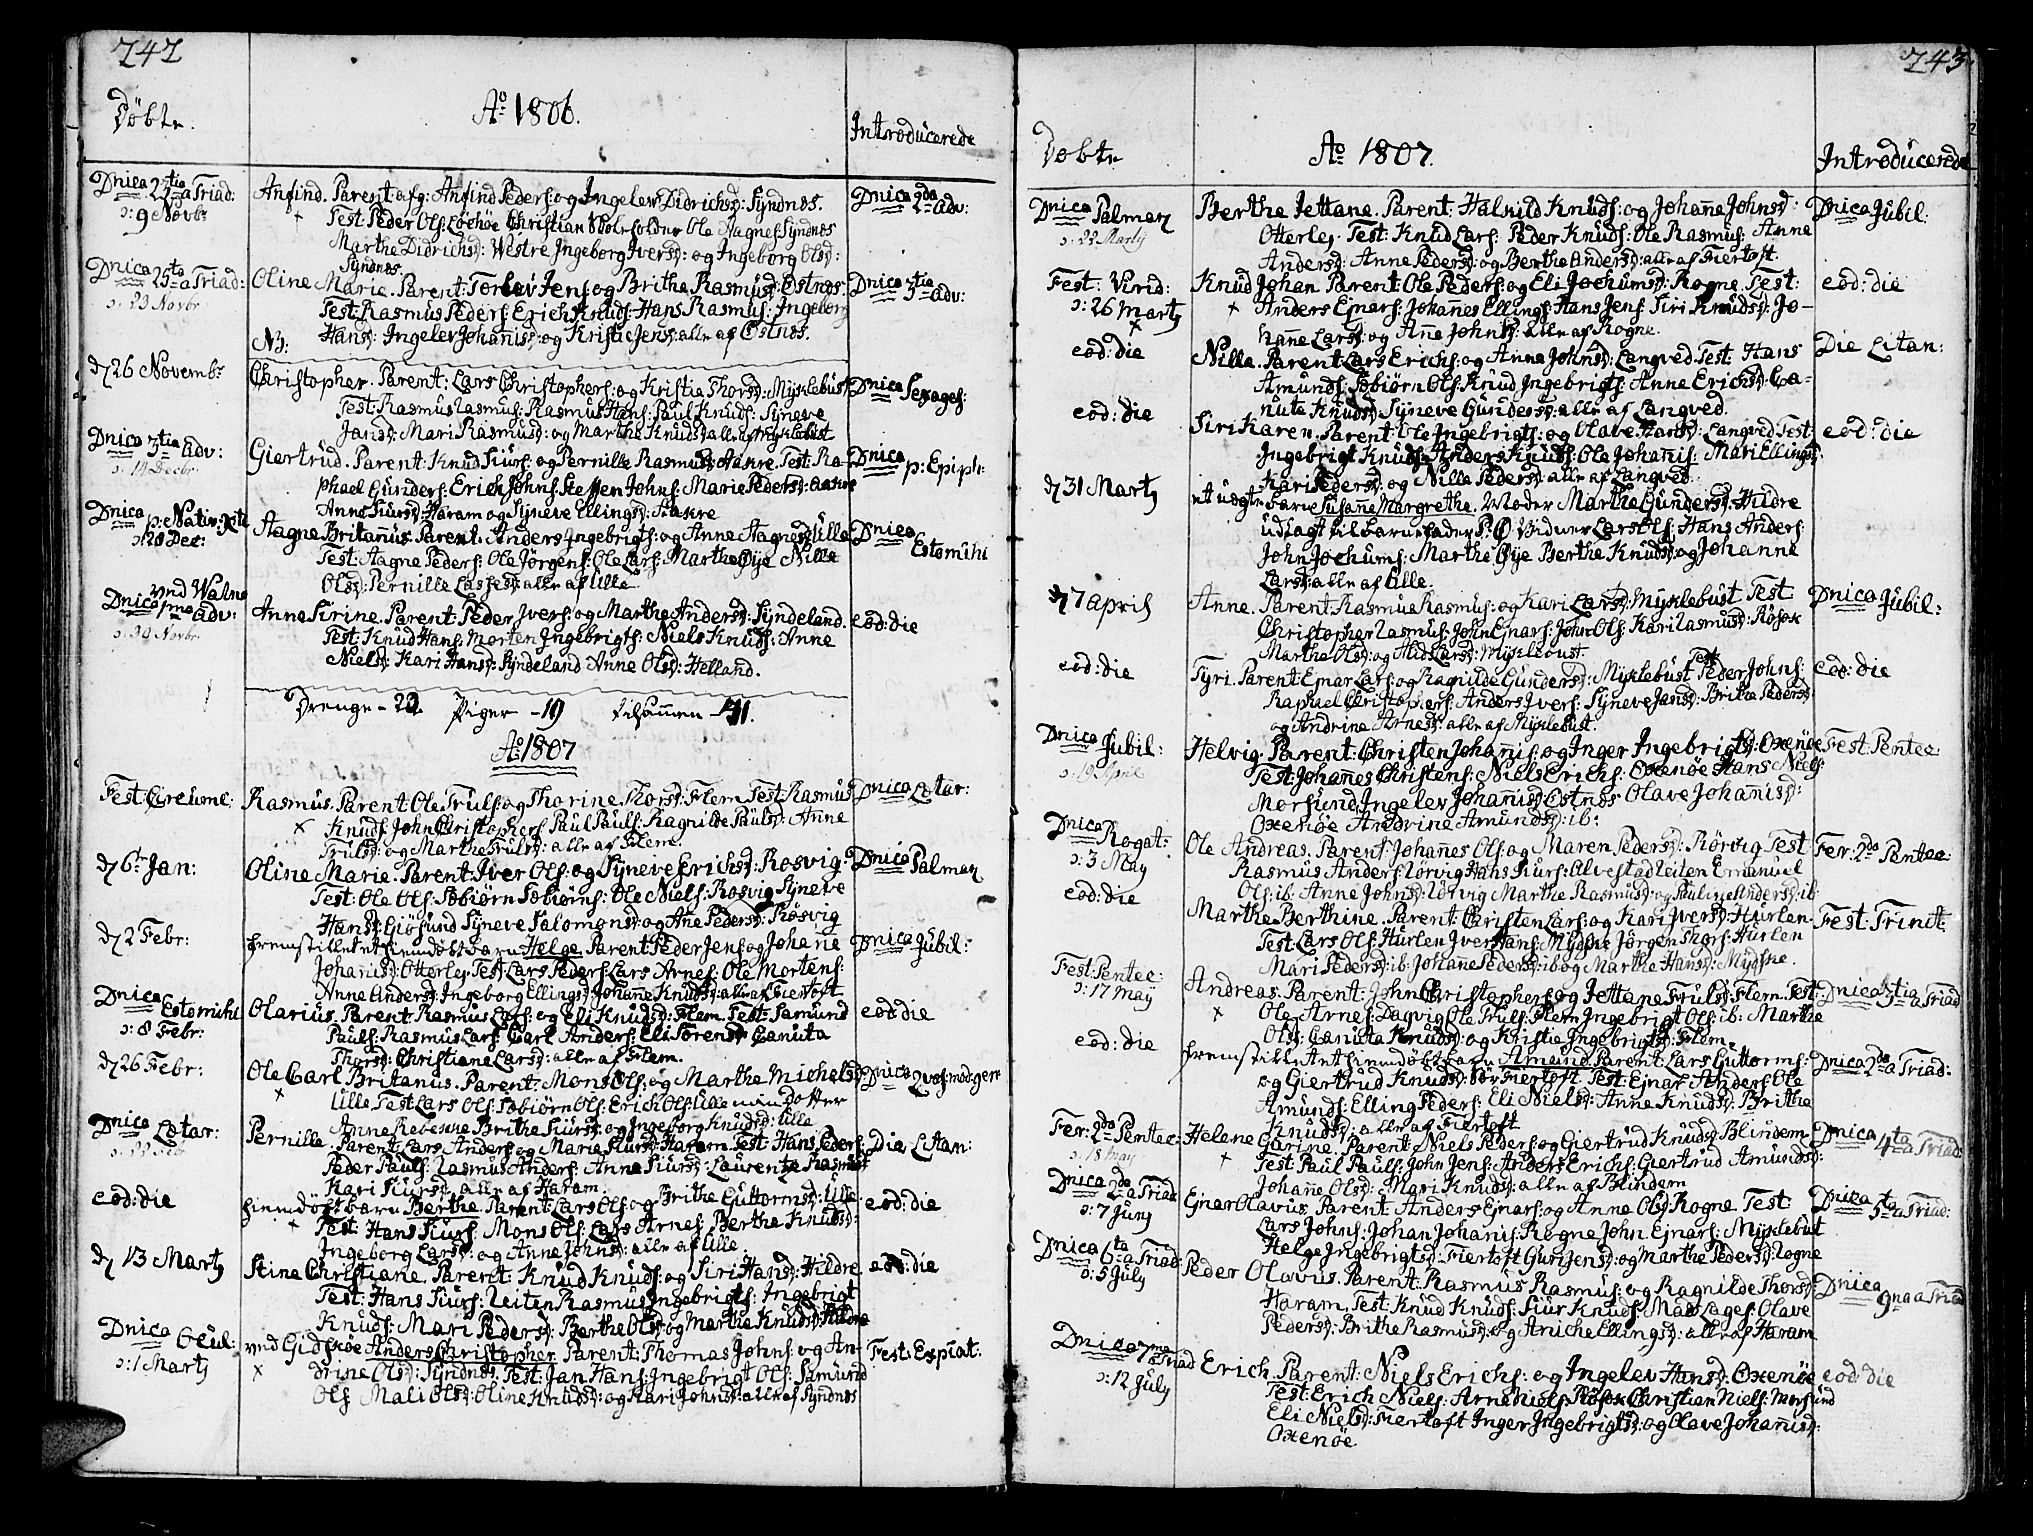 242
Döbte.
Ao 1806.
Introducerede
Dnica 23tia a Triad:
ɔ: 9 Novbr
Anfind. Parent afg: Anfind Peders: og Ingelev Didrichsd: Syndnes.
Test: Peder Ols: Christian Skoleholder Ole Hagnes: Syndnes
Marthe Didrichsd: Westre Ingeborg Iversd: og Ingeborg Olsd:
Syndnes.
Dnica 2da adv:
Dnica 25ta a Triad:
ɔ: 23 Novbr
Oline Marie. Parent: Torlev Jens: og Brithe Rasmusd: Östnes.
Test: Rasmus Peders: Erich Knuds: Hans Rasmus: Ingeborg
Hansd: Ingelev Johanisd: og Kristie Jensd: alle af Östnes.
Dnica 3tia adv:
NB:
d 26 Novembr
Christopher. Parent: Lars Christophers: og Kristie Thorsd: Myklebust
Test: Rasmus Rasmus: Rasmus Hans: Paul Knuds: Syneve
Jansd: Mari Rasmusd: og Marthe Knudsd: alle af Myklebust
Dnica Sexages:
Dnica 3tia adv:
ɔ: 14 Decbr
Giertrud. Parent: Knud Siurs: og Pernille Rasmusd: Aakre. Test: Ra-
phael Gunders: Erich Johns: Steffen Johns: Marie Pedersd: Aakre
Anne Siursd: Haram og Syneve Ellingsd: Aakre
Dnica p: Epiph:
Dnica p: Nativ: Xti
ɔ: 28 Dec:
Aagne Britanus. Parent: Anders Ingebrigts: og Anne Aagnesd: Ulle
Test: Aagne Peders: Ole Jörgens: Ole Lars: Marthe Öye Nille
Olsd: Pernille Lassesd: alle af Ulle
Dnica Estomihi
ved Walne
Dnica 1ma adv:
ɔ: 30 Novbr.
Anne Sirine. Parent: Peder Ivers: og Marthe Andersd: Syndeland.
Test: Knud Hans: Morten Ingebrigts: Niels Knuds: Anne
Nielsd: Kari Hansd: Syndeland Anne Olsd: Helland.
eod: die
Drenge - 22 Piger - 19 tilsammen - 41.
Ao 1807
Fest: Circumc:
Rasmus. Parent Ole Truls: og Thorine Thorsd: Flem Test Rasmus
Knuds: John Christophers: Paul Pauls: Ragnilde Paulsd: Anne
Trulsd: og Marthe Trulsd: alle af Flem.
Dnica Letar:
d 6te Jan:
Oline Marie. Parent: Iver Ols: og Syneve Erichsd: Rosvig.
Test: Ole Ols: Tobiörn Tobiörns: Ole Niels: Rosvig Syneve
Hansd: Giösund Syneve Salomonsd: og Ane Pedersd: Rösvig
Dnica Palmar
d 2 Febr:
fremstillent hiemdöbt barn Helge. Parent: Peder Jens: og Johane
Johanisd: Otterlej Test: Lars Peders: Lars Arnes: Ole Mortens:
Anne Andersd: Ingeborg Ellingsd: Johanne Knudsd: alle af Fiertoft
Dnica Jubil:
Dnica Estomihi
ɔ: 8 Febr:
Olarius. Parent Rasmus Lars: og Eli Knudsd: Flem. Test: Samund
Pauls: Rasmus Lars: Carl Anders: Eli Sorensd: Canuta
Thorsd: Christiane Larsd: alle af Flem.
eod die
d 26 Febr:
Ole Carl Britanus. Parent: Mons Ols: og Marthe Michelsd:
Ulle, Test: Lars Ols: Tobiörn Ols: Erich Ols: Ulle
Anne Rebekke Brithe Siursd: og Ingeborg Knudsd: Ulle
Dnica Qvasimodogen:
Dnica Letar:
Pernille. Parent: Lars Anders: og Marie Siursd: Haram. Test: Hans Peders:
Peder Pauls: Rasmus Anders: Anne Siursd: Laurentze Rasmusd
Kari Siursd: alle af Haram.
Die Litan:
eod: die
hiemdöbt barn Berthe. Parent: Lars Ols: og Brithe Guttormsd: Ulle.
Test: Hans Siurs: Mons Ols: Lars Arnes: Berthe Knudsd:
Ingeborg Larsd: og Anne Johnsd: alle af Ulle.
eod: die
d 13 Marty
Stine Christiane. Parent: Knud Knuds: og Siri Hansd: Hildre
Test: Hans Siurs: Leiten Rasmus Ingebrigts: Ingebrigt
Knuds: Mari Pedersd: Berthe Olsd: og Marthe Knudsd: Hildre
eod: die
Dnica Ocul:
ɔ: 1 Marty
ved Gidskøe Anders Christopher. Parent: Thomas Johns: og An-
drine Olsd: Syndnes. Test: Jan Hans: Ingebrigt Ols: Samund
Ols: Mali Olsd: Oline Knudsd: og Kari Johnsd: alle af Syndnes
Fest: Expiat:
243
Döbte
Ao 1807.
Introducerede
Dnica Palmar
ɔ: 22 Marty
Berthe Jettane. Parent: Halkild Knuds: og Johanne Johnsd:
Otterlej. Test: Knud Lars: Peder Knuds: Ole Rasmus: Anne
Andersd: Anne Pedersd: og Berthe Andersd: alle af Fiertoft.
Dnica Jubil:
Fest: Virid:
ɔ: 26 Marty
Knud Johan Parent: Ole Peders: og Eli Jochumsd: Rogne. Test:
Anders Ejnars: Johannes Ellings: Hans Jens: Siri Knudsd: Jo-
hanne Larsd: og Anne Johnsd: alle af Rogne.
eod: die
eod: die
Nille. Parent: Lars Erichs: og Anna Johnsd: Langved Test: Hans
Amunds: Tobiörn Ols: Knud Ingebrigts: Anne Erichsd: Ca-
nute Knudsd: Syneve Gundersd: alle af Langved.
Die Litan:
eod: die
Siri Karen. Parent: Ole Ingebrigts: og Olave Hansd: Langved Test:
Ingebrigt Knuds: Anders Knuds: Ole Johanis: Mari Ellingsd:
Kari Pedersd: og Nille Pedersd: alle af Langved.
eod: die
d 31 Marty
et uægte barn Susanne Margrethe. Moder Marthe Gundersd: Hildre
udlagt til barnefader Lars Ols: Hans Anders:
John Jochums: Marthe Öye Berthe Knudsd: og Johanne
Larsd: alle af Ulle.
d 7 April
Anne. Parent: Rasmus Rasmus: og Kari Larsd: Myklebust Test
Christopher Rasmus: John Ejnars: John Ols: Kari Rasmusd: Rösok
Marthe Olsd: og Larsd: Myklebust.
Dnica Jubil:
eod: die
Syri. Parent: Ejnar Lars: og Ragnilde Gundersd: Myklebust Test Peder Johns:
Raphael Christophers: Anders Ivers: Syneve Jansd: Brithe Pedersd:
og Andrine Arnesd: alle af Myklebust.
eod: die
Dnica Jubil:
ɔ: 19 April
Helvig. Parent: Christen Johanis: og Inger Ingebrigtsd: Oxenöe
Test: Johannes Christens: Niels Erichs: Oxenöe Hans Niels:
Morsund Ingelev Johanisd: Östnes Olave Johanisd:
Oxenöe Andrine Amundsd: ib:
Fest: Pentec:
Dnica Rogat:
ɔ: 3 May
Ole Andreas. Parent: Johannes Ols: og Maren Pedersd: Rörvig Test
Rasmus Anders: Rörvig Hans Siurs: Ulvestad Leiten Emanuel
Ols: ib: Anne Johnsd: Rörvig Marthe Rasmusd: og Pauline Andersd: ib:
Fer: 2da Pentec:
eod: die
Marthe Berthine. Parent: Christen Lars: og Kari Iversd: Hurlen.
Test: Lars Ols: Hurlen Iver Hans: Mydske Jörgen Thors: Hurlen
Mari Pedersd: ib: Johanne Pedersd: ib og Marthe Hansd: Mydske.
Fest: Trinit
Fest: Pentec:
ɔ: 17 May
Andreas. Parent: John Christophers: og Jettane Trulsd: Flem. Test:
Ole Arnes: Dagvig Ole Truls: Flem Ingebrigt Ols: ib: Marthe
Olsd: Canuta Knudsd: og Kristie Ingebrigtsd: Flem.
Dnica 3tia a Triad
eod: die
fremstillent hiemdöbt barn Amund. Parent: Lars Guttorms:
og Giertrud Knudsd: Fiertoft Test: Ejnar Anders: Ole
Amunds: Elling Peders: Eli Nielsd: Anne Knudsd: Brithe
Knudsd: alle af Fiertoft
Dnica 2da a Triad:
Fer: 2da Pentec:
ɔ: 18 May
Helene Carine. Parent: Niels Peders: og Giertrud Knudsd: Blindem
Test: Paul Pauls: John Jens: Anders Erichs: Giertrud Amundsd:
Johanne Olsd: Mari Knudsd: alle af Blindem
Dnica 4ta a Triad
Dnica 2da a Triad
ɔ: 7 Juny
Ejnar Olavus. Parent: Anders Ejnars: og Anne Olsd: Rogne. Test
Lars Johns: Johan Johanis: Rogne John Ejnars: Myklebust
Helge Ingebrigtsd: Fiertoft Guri Jensd: og Marthe Pedersd: Rogne
Dnica 5ta a Triad:
Dnica 6ta a Triad:
ɔ: 5 July
Peder Olavus. Parent: Rasmus Rasmus: og Ragnilde Thorsd:
Haram. Test: Knud Knuds: Siur Knuds: Mads Lages: Olave
Pedersd: Brithe Rasmusd: og Aniche Ellingsd: alle af Haram
Dnica 9na a Triad
Dnica 7ma a Triad
ɔ: 12 July
Erich. Parent: Niels Erichs: og Ingelev Hansd: Oxenöe
Test: Erich Niels: Arne Niels: Rösok Christian Niels: Morsund
Eli Nielsd: Fiertoft Inger Ingebrigtsd: og Olave Johanisd:
Oxenöe
eod: die